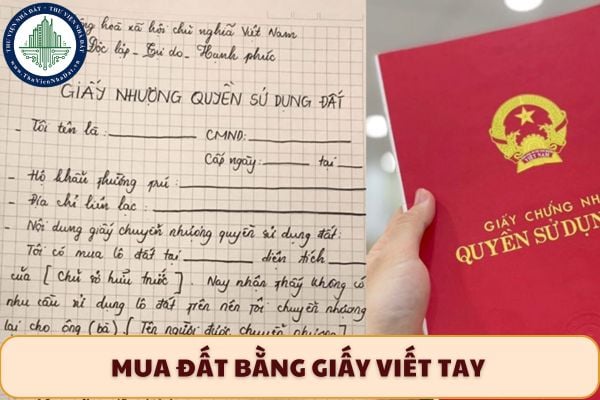 THƯ VIỆN NHÀ ĐẤT
www.ThuVienNhaDat.vn
ng hoà xã hội chủ nghĩa Việt Nam
Độc lập - Tự do - Hạnh phúc
GIẤY NHƯỢNG QUYỀN SỬ DỤNG ĐẤT
- Tôi tên là: CMND:
Cấp ngày: tại
- Hộ khẩu thường trú:
- Địa chỉ liên lạc:
- Nội dung giấy chuyển nhượng quyền sử dụng đất:
Tôi có mua lô đất tại diện tích
của [ Chủ sở hữu trước ]. Nay nhận thấy không có
nhu cầu sử dụng lô đất trên nên tôi chuyển nhượng
lại cho ông (bà) [ Tên người được chuyển nhượng ]
VIỆT NAM
GIẤY CHỨNG NH
QUYỀN SỬ DỤN
MUA ĐẤT BẰNG GIẤY VIẾT TAY